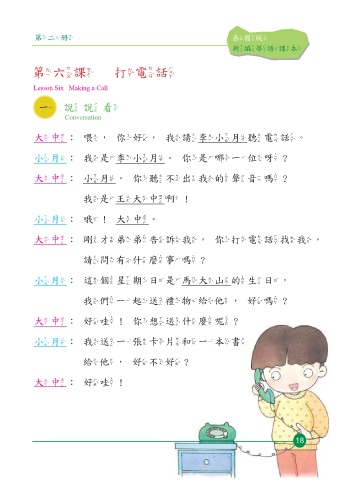 第二冊
泰國版
新編華語課本
第六課 打電話
Lesson Six Making a Call
一 說說看
Conversation
大中：喂，你好，我請李小月聽電話。
小月：我是李小月。你是哪一位呀？
大中：小月，你聽不出我的聲音嗎？
我是王大中啊！
小月：哦！大中。
大中：剛才弟弟告訴我，你打電話找我，
請問有什麼事嗎？
小月：這個星期日是馬大山的生日，
我們一起送禮物給他，好嗎？
大中：好哇！你想送什麼呢？
小月：我送一張卡片和一本書
給他，好不好？
大中：好哇！
18